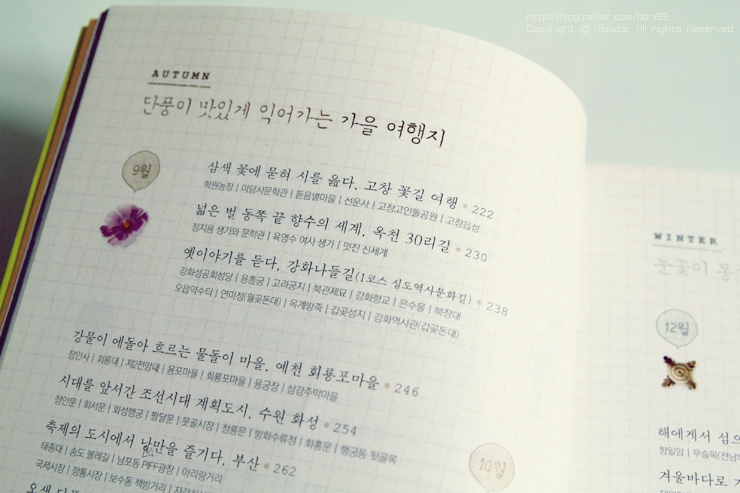 http://blog.naver.com/bbni99
Copyright ⓒ Violace. All rights Reserved
AUTUMN
단풍이 맛있게 익어가는 가을 여행지
9월
삼색 꽃에 묻혀 시를 읊다, 고창 꽃길 여행 • 222
학원농장 | 미당시문학관 | 돋음볕마을 | 선운사 | 고창고인돌공원 | 고창읍성
넓은 벌 동쪽 끝 향수의 세계, 옥천 30리길 • 230
정지용 생가와 문학관 | 육영수 여사 생가 | 멋진 신세계
옛이야기를 듣다, 강화나들길(1코스 심도역사문화길) • 238
강화성공회성당 | 용흥궁 | 고려궁지 | 북관제묘 | 강화향교 | 은수물 | 북장대
오읍약수터 | 연미정(월곶돈대) | 옥계방죽 | 갑곶성지 | 강화역사관(갑곶돈대)
강물이 에돌아 흐르는 물돌이 마을, 예천 회룡포마을 • 246
장안사 | 회룡대 | 제2전망대 | 용포마을 | 회룡포마을 | 용궁장 | 삼강주막마을
시대를 앞서간 조선시대 계획도시, 수원 화성 • 254
장안문 | 화서문 | 화성행궁 | 팔달문 | 못골시장 | 창룡문 | 방화수류정 | 화홍문 | 행궁동 뒷골목
축제의 도시에서 낭만을 즐기다, 부산 • 262
태종대 | 송도 볼레길 | 남포동 PIFF광장 | 아리랑거리
국제시장 | 깡통시장 | 보수동 책방거리
10월
오색 단풍
WINTER
눈꽃이 몽
12월
해에게서 섬으
향일암 | 무슬목(전남
겨울바다로